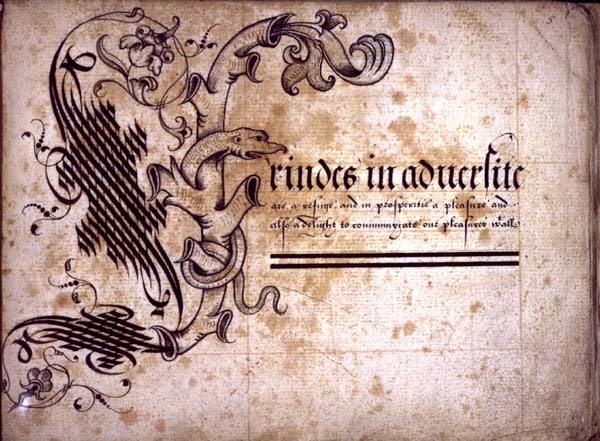 5
Frindes in aduersite
are a refuge and in prosperitie a pleasure and
also a delight to communycate our pleasures wᵗall